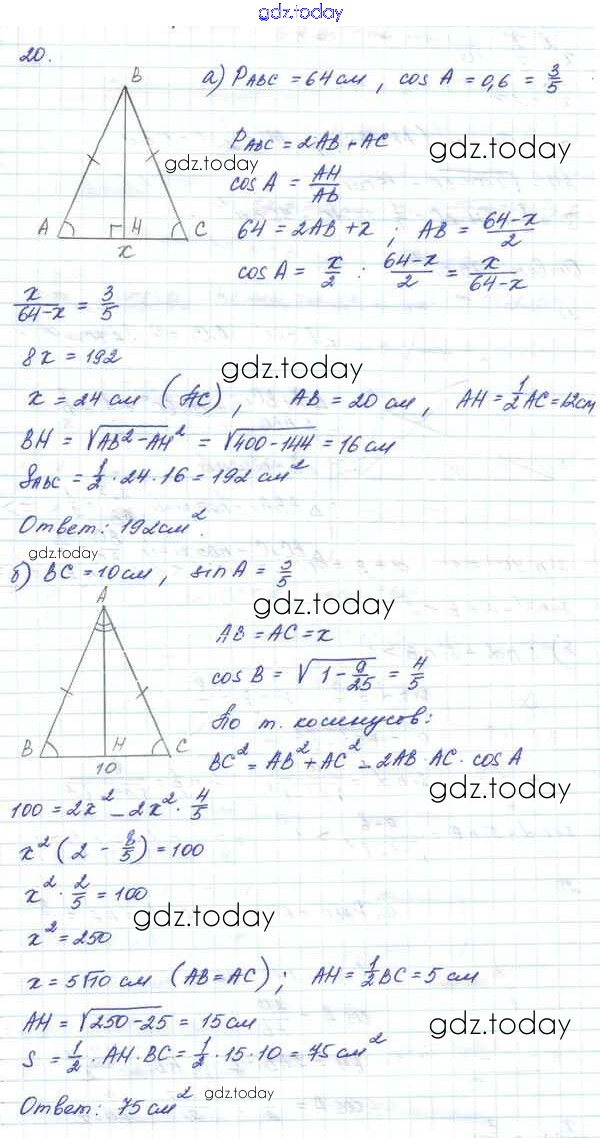 gdz.today
20.
а) P_ABC = 64 см, cos A = 0,6 = 3/5
B
P_ABC = 2AB + AC
gdz.today
gdz.today
cos A = AH/AB
A H C
x
64 = 2AB + x ; AB = (64-x)/2
cos A = x/2 : (64-x)/2 = x/(64-x)
gdz.today
x/(64-x) = 3/5
8x = 192
gdz.today
x = 24 см (AC), AB = 20 см, AH = 1/2 AC = 12см
BH = √(AB² - AH²) = √(400-144) = 16 см
S_ABC = 1/2 · 24 · 16 = 192 см²
Ответ: 192см².
gdz.today
б) BC = 10 см, sin A = 3/5
gdz.today
A
AB = AC = x
cos B = √(1 - 9/25) = 4/5
По т. косинусов:
B H C
10
BC² = AB² + AC² - 2AB · AC · cos A
gdz.today
100 = 2x² - 2x² · 4/5
x² (2 - 8/5) = 100
x² · 2/5 = 100
gdz.today
x² = 250
x = 5√10 см (AB = AC) ; AH = 1/2 BC = 5 см
AH = √(250-25) = 15 см
gdz.today
S = 1/2 · AH · BC = 1/2 · 15 · 10 = 75 см²
gdz.today
Ответ: 75 см²